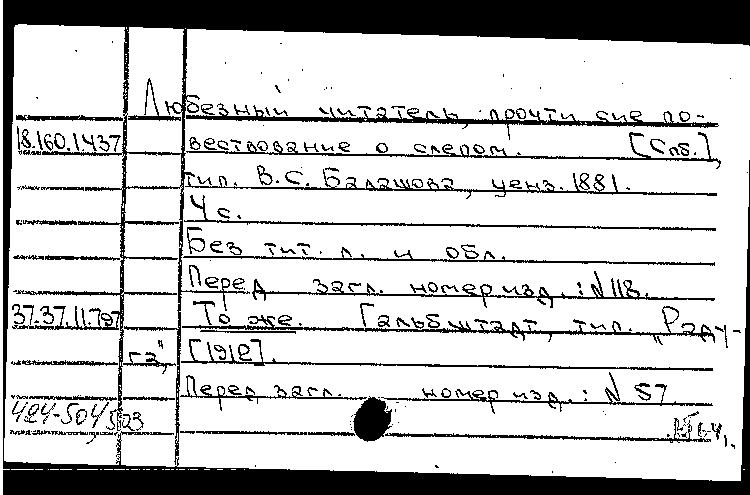 Любезный читатель, прочти сие по-
18.160.1437 вествование о слепом. [Спб.],
тип. В.С. Балашова, ценз. 1881.
4 с.
Без тит. л. и обл.
Перед загл. номер изд.: N 118.
37.37.11.797 То же. Гальбштадт, тип. „Раду-
га", [1912].
Перед загл. номер изд.: N 57
424-504/523